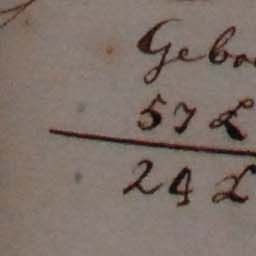 Gebo
57 £
24 £